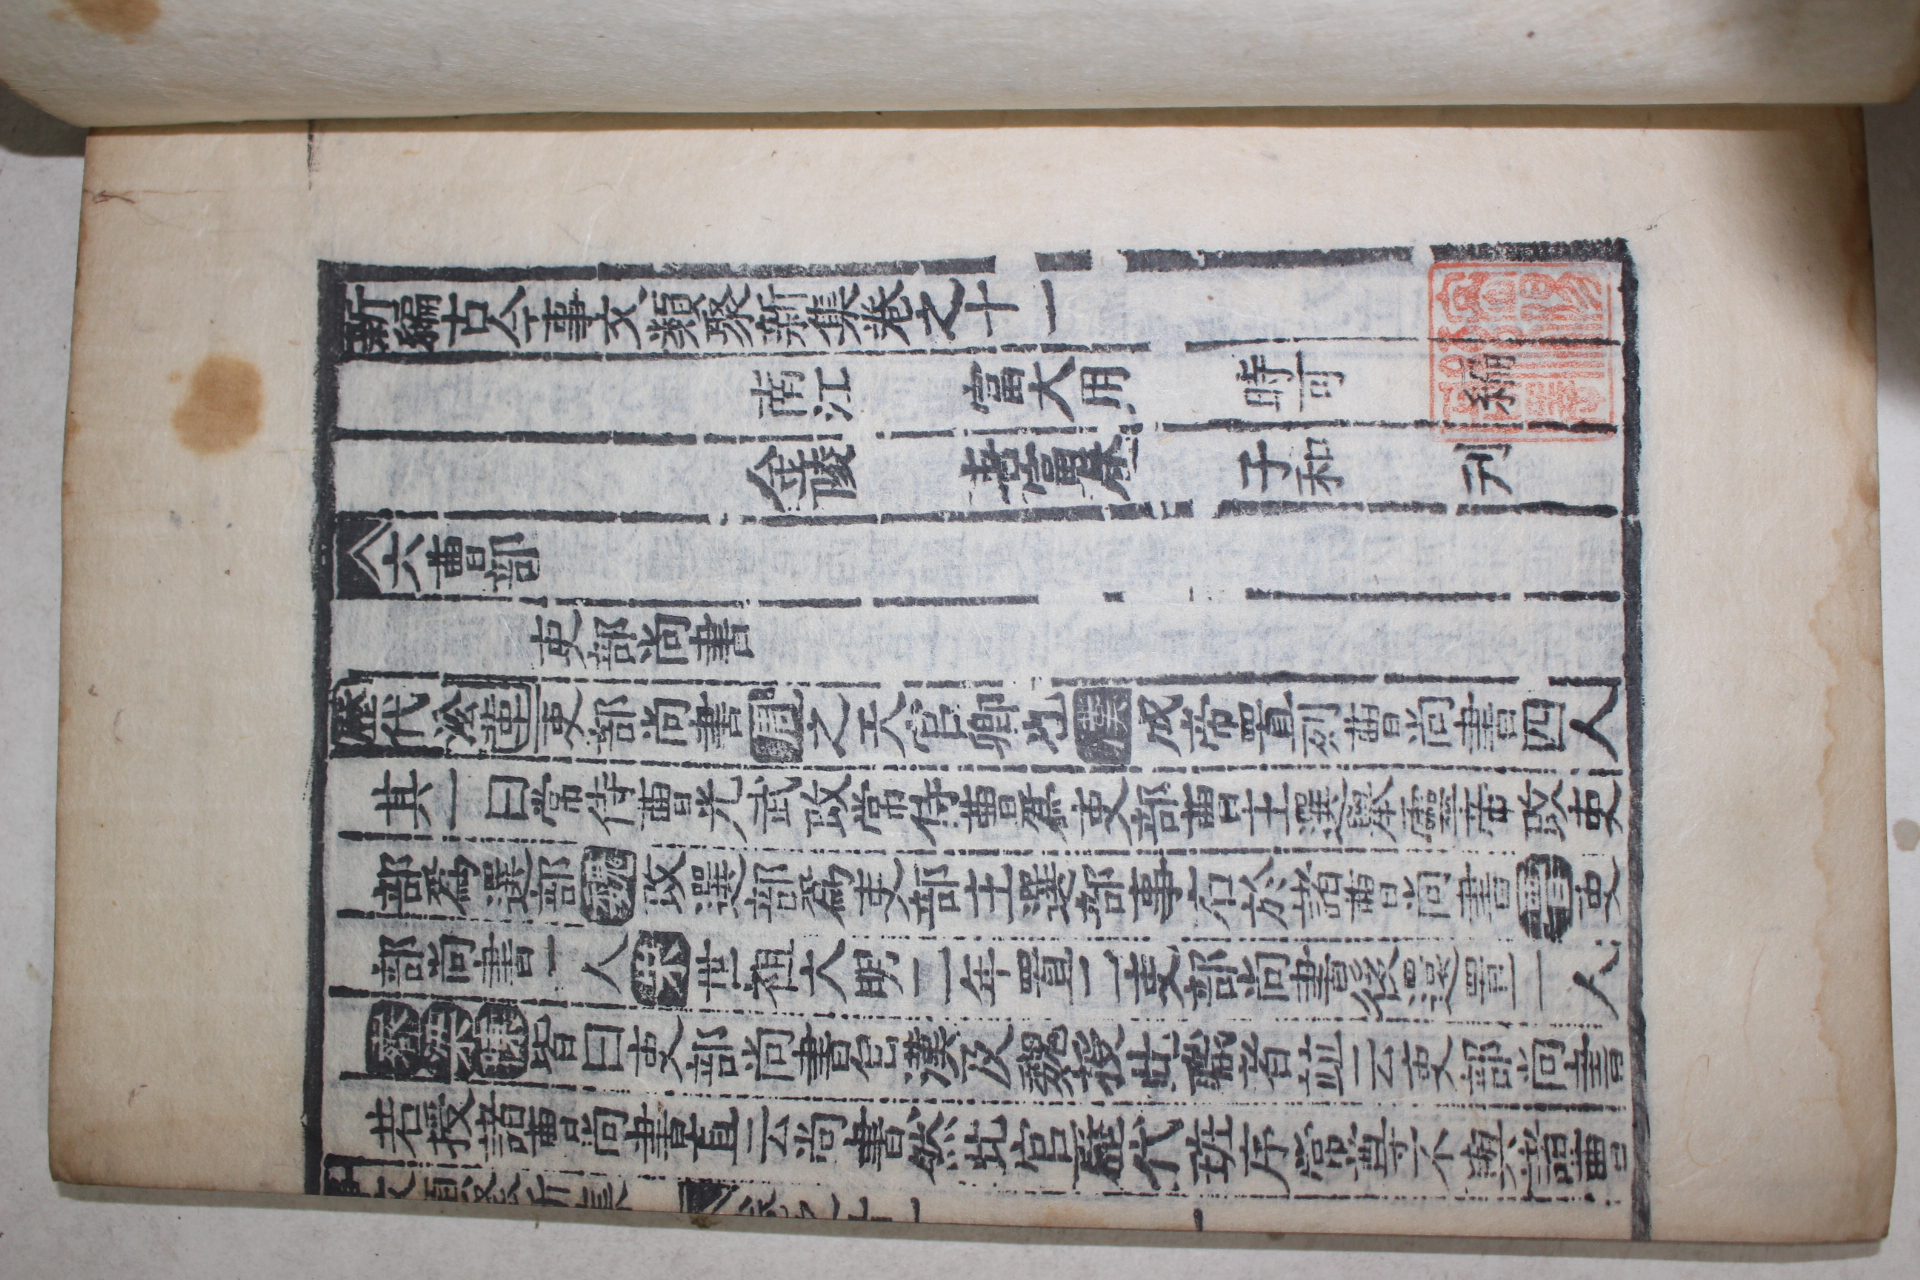 新編古今事文類聚新集卷之十一
南江 富大用 時可 編
金陵 唐富春 子和 刋
六曹部
吏部尚書
歷代沿革吏部尚書周之天官卿也漢成帝置列曹尚書四人
其一曰常侍曹光武改常侍曹爲吏部曹主選舉靈帝改吏
部爲選部魏改選部爲吏部主選部事右於諸曹尚書晋吏
部尚書一人宋世祖大明二年置二吏部尚書後還置一人
齊梁陳皆曰吏部尚書自漢及魏授此職者並云吏部尚書
若授諸曹尚書直云尚書然此官歷代班序常尊不與諸曹
事文類聚新集 卷之十一 一